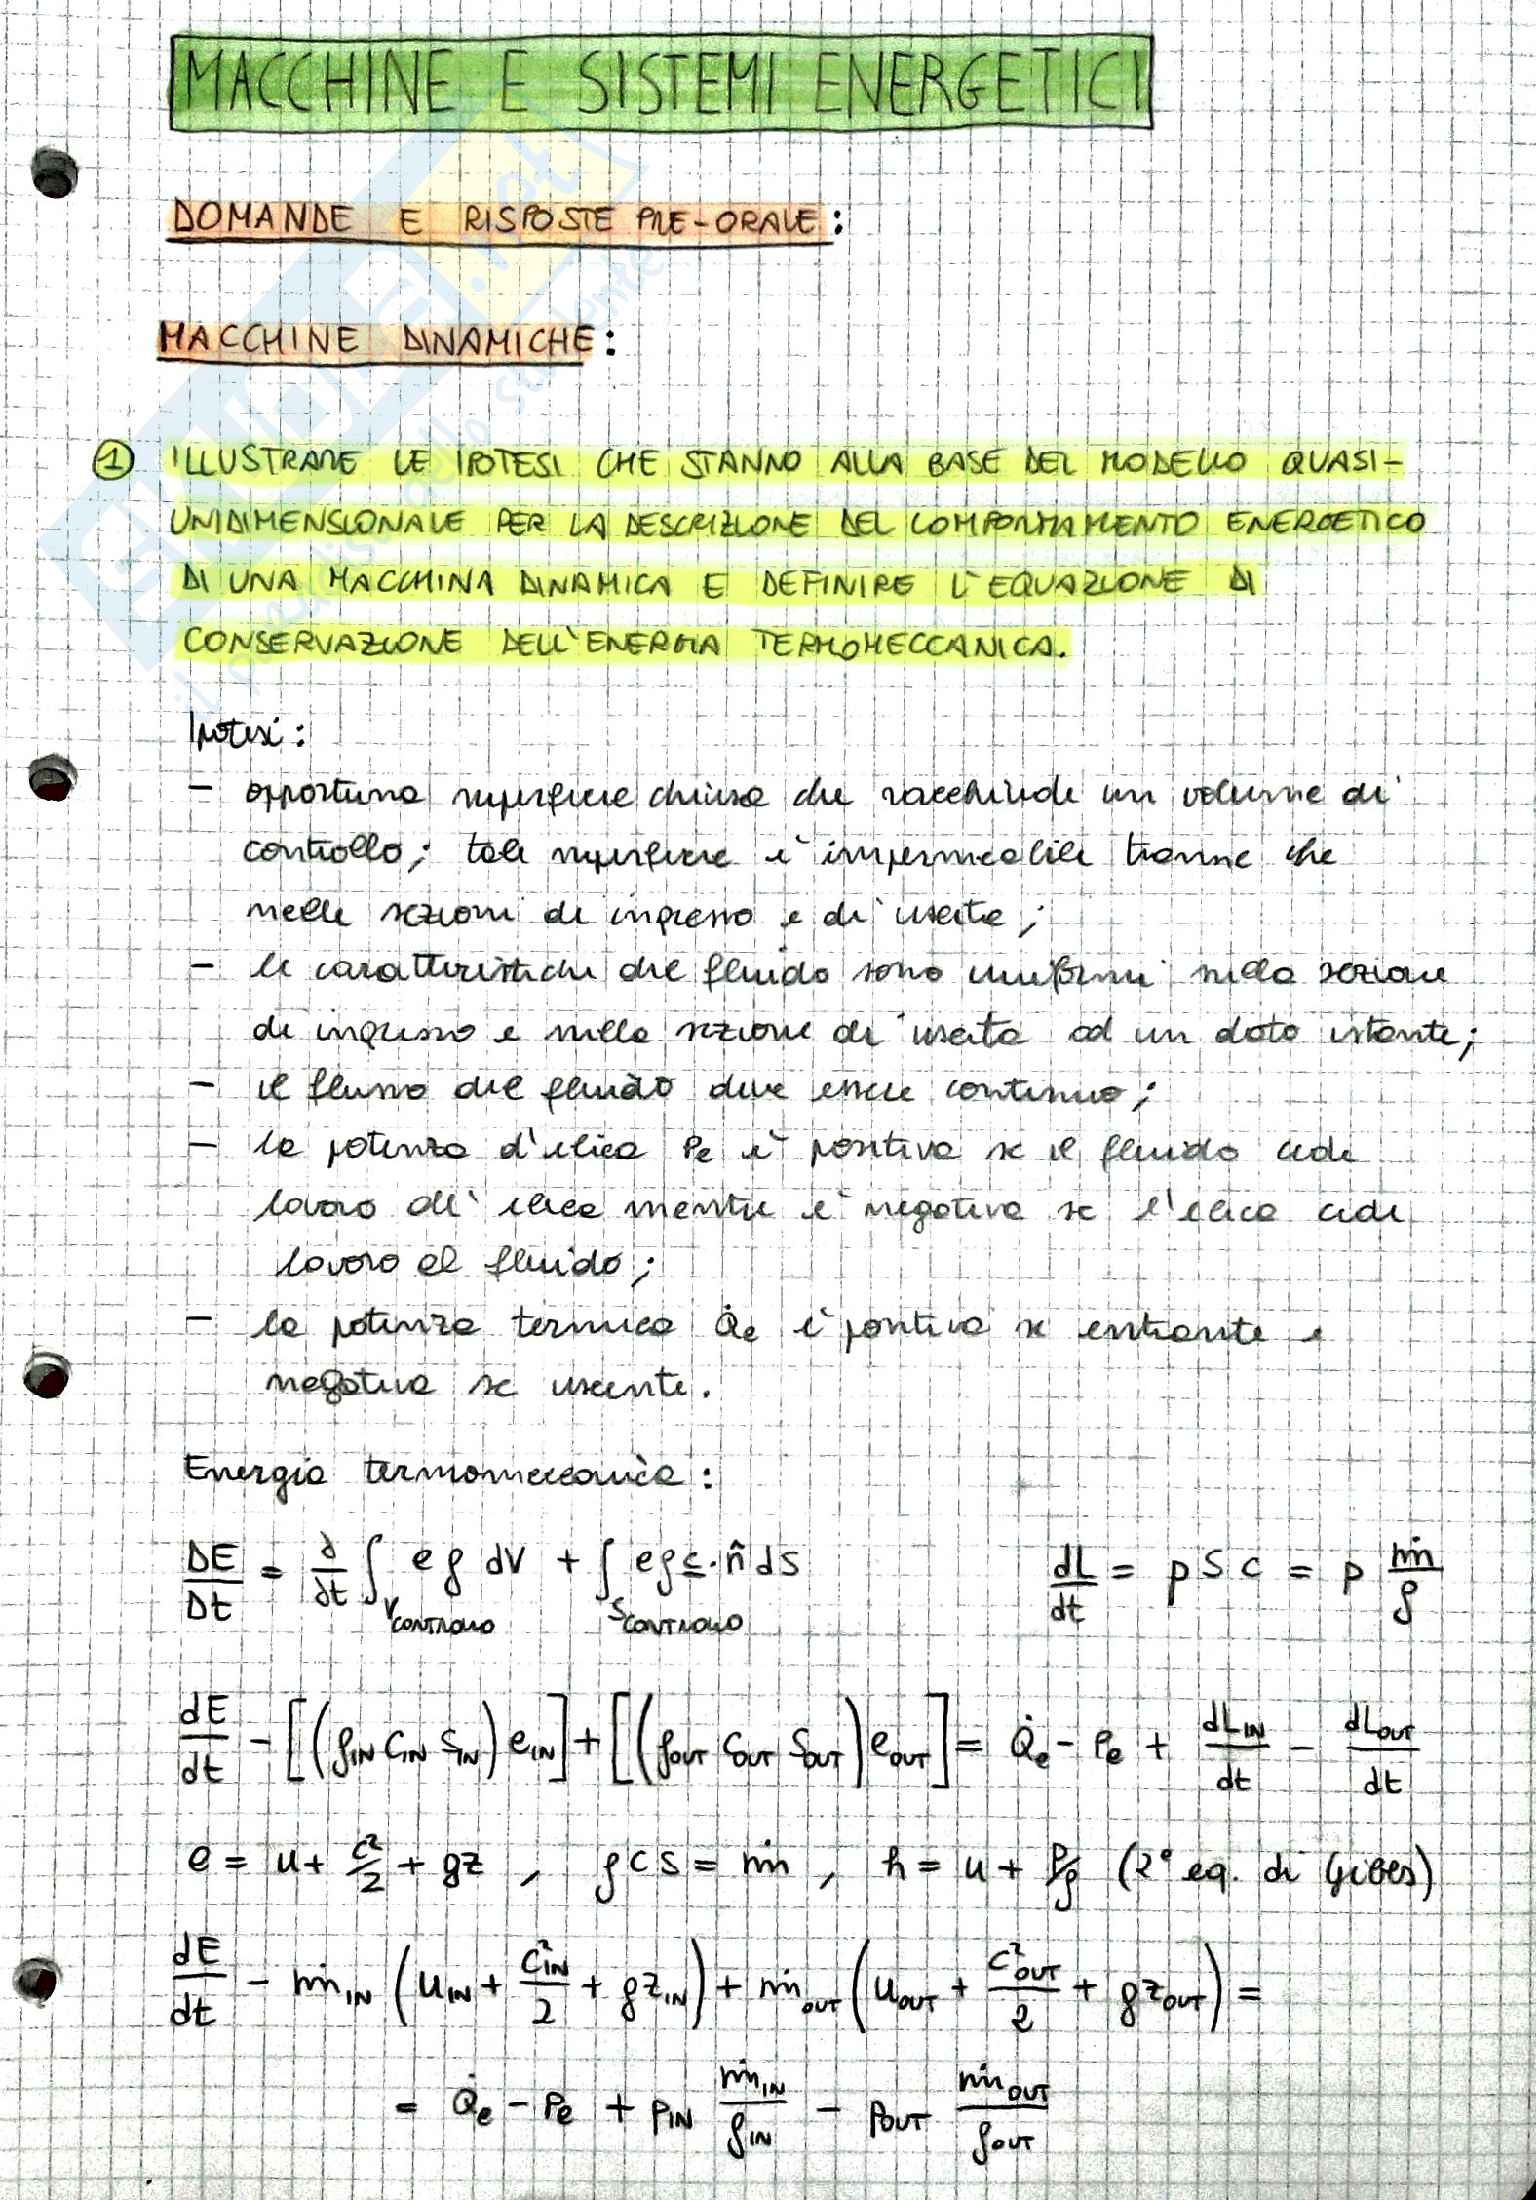 MACCHINE E SISTEMI ENERGETICI
DOMANDE E RISPOSTE PRE-ORALE:
MACCHINE DINAMICHE:
① ILLUSTRARE LE IPOTESI CHE STANNO ALLA BASE DEL MODELLO QUASI-
UNIDIMENSIONALE PER LA DESCRIZIONE DEL COMPORTAMENTO ENERGETICO
DI UNA MACCHINA DINAMICA E DEFINIRE L'EQUAZIONE DI
CONSERVAZIONE DELL'ENERGIA TERMOMECCANICA.
Ipotesi:
- opportuna superficie chiusa che racchiude un volume di
controllo; tale superficie è impermeabile tranne che
nelle sezioni di ingresso e di uscita;
- le caratteristiche del fluido sono uniformi nella sezione
di ingresso e nella sezione di uscita ad un dato istante;
- il flusso del fluido deve essere continuo;
- la potenza d'elica Pe è positiva se il fluido cede
lavoro all'elica mentre è negativa se l'elica cede
lavoro al fluido;
- la potenza termica Q̇e è positiva se entrante e
negativa se uscente.
Energia termomeccanica:
DE/Dt = ∂/∂t ∫_VCONTROLLO eρ dV + ∫_SCONTROLLO eρ c·n̂ dS    dL/dt = p S c = p ṁ/ρ
dE/dt - [(ρIN cIN SIN) eIN] + [(ρOUT cOUT SOUT) eOUT] = Q̇e - Pe + dLIN/dt - dLOUT/dt
e = u + c²/2 + gz , ρcS = ṁ , h = u + p/ρ (2° eq. di Gibbs)
dE/dt - ṁIN (uIN + c²IN/2 + gzIN) + ṁOUT (uOUT + c²OUT/2 + gzOUT) =
= Q̇e - Pe + pIN ṁIN/ρIN - pOUT ṁOUT/ρOUT